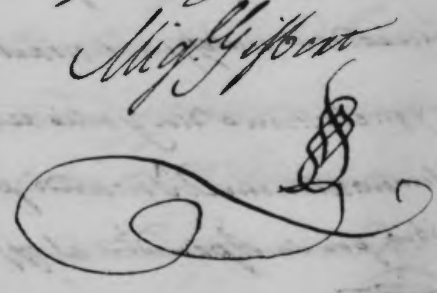 Migl. Gisbert